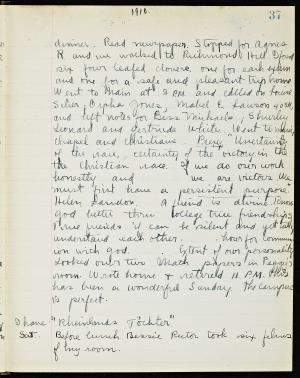 1918.
37
dinner. Read newspaper. Stopped for Agnes
R and we walked to Richmond Hill. Found
six four leafed clovers, one for each
and one for a safe and pleasant trip home
Went to Main at 2 P.M. and called on Louise
Orpha Jones, Mabel E Lawson
and left notes for Bess Michaels, Shirley
Leonard and Gertrude White. Went to
chapel and Christians. Prexy "Uncertainty
of the race, certainty of the victory in the
the Christian race. If we do our work
honestly and we are victors. We
must first have a persistent purpose"
Helen A friend is divine.
good better thru college true friendships
True friends can be silent and yet
understand each other. hour for Commun
ion with god. of our personality
Looked over two Math papers in Peggy's
room. Wrote home & retired 11 P.M. This
has been a wonderful Sunday. The campus
is perfect.
"Rheinlands Töchter"
Before lunch Bessie Rector took six films
of my room.